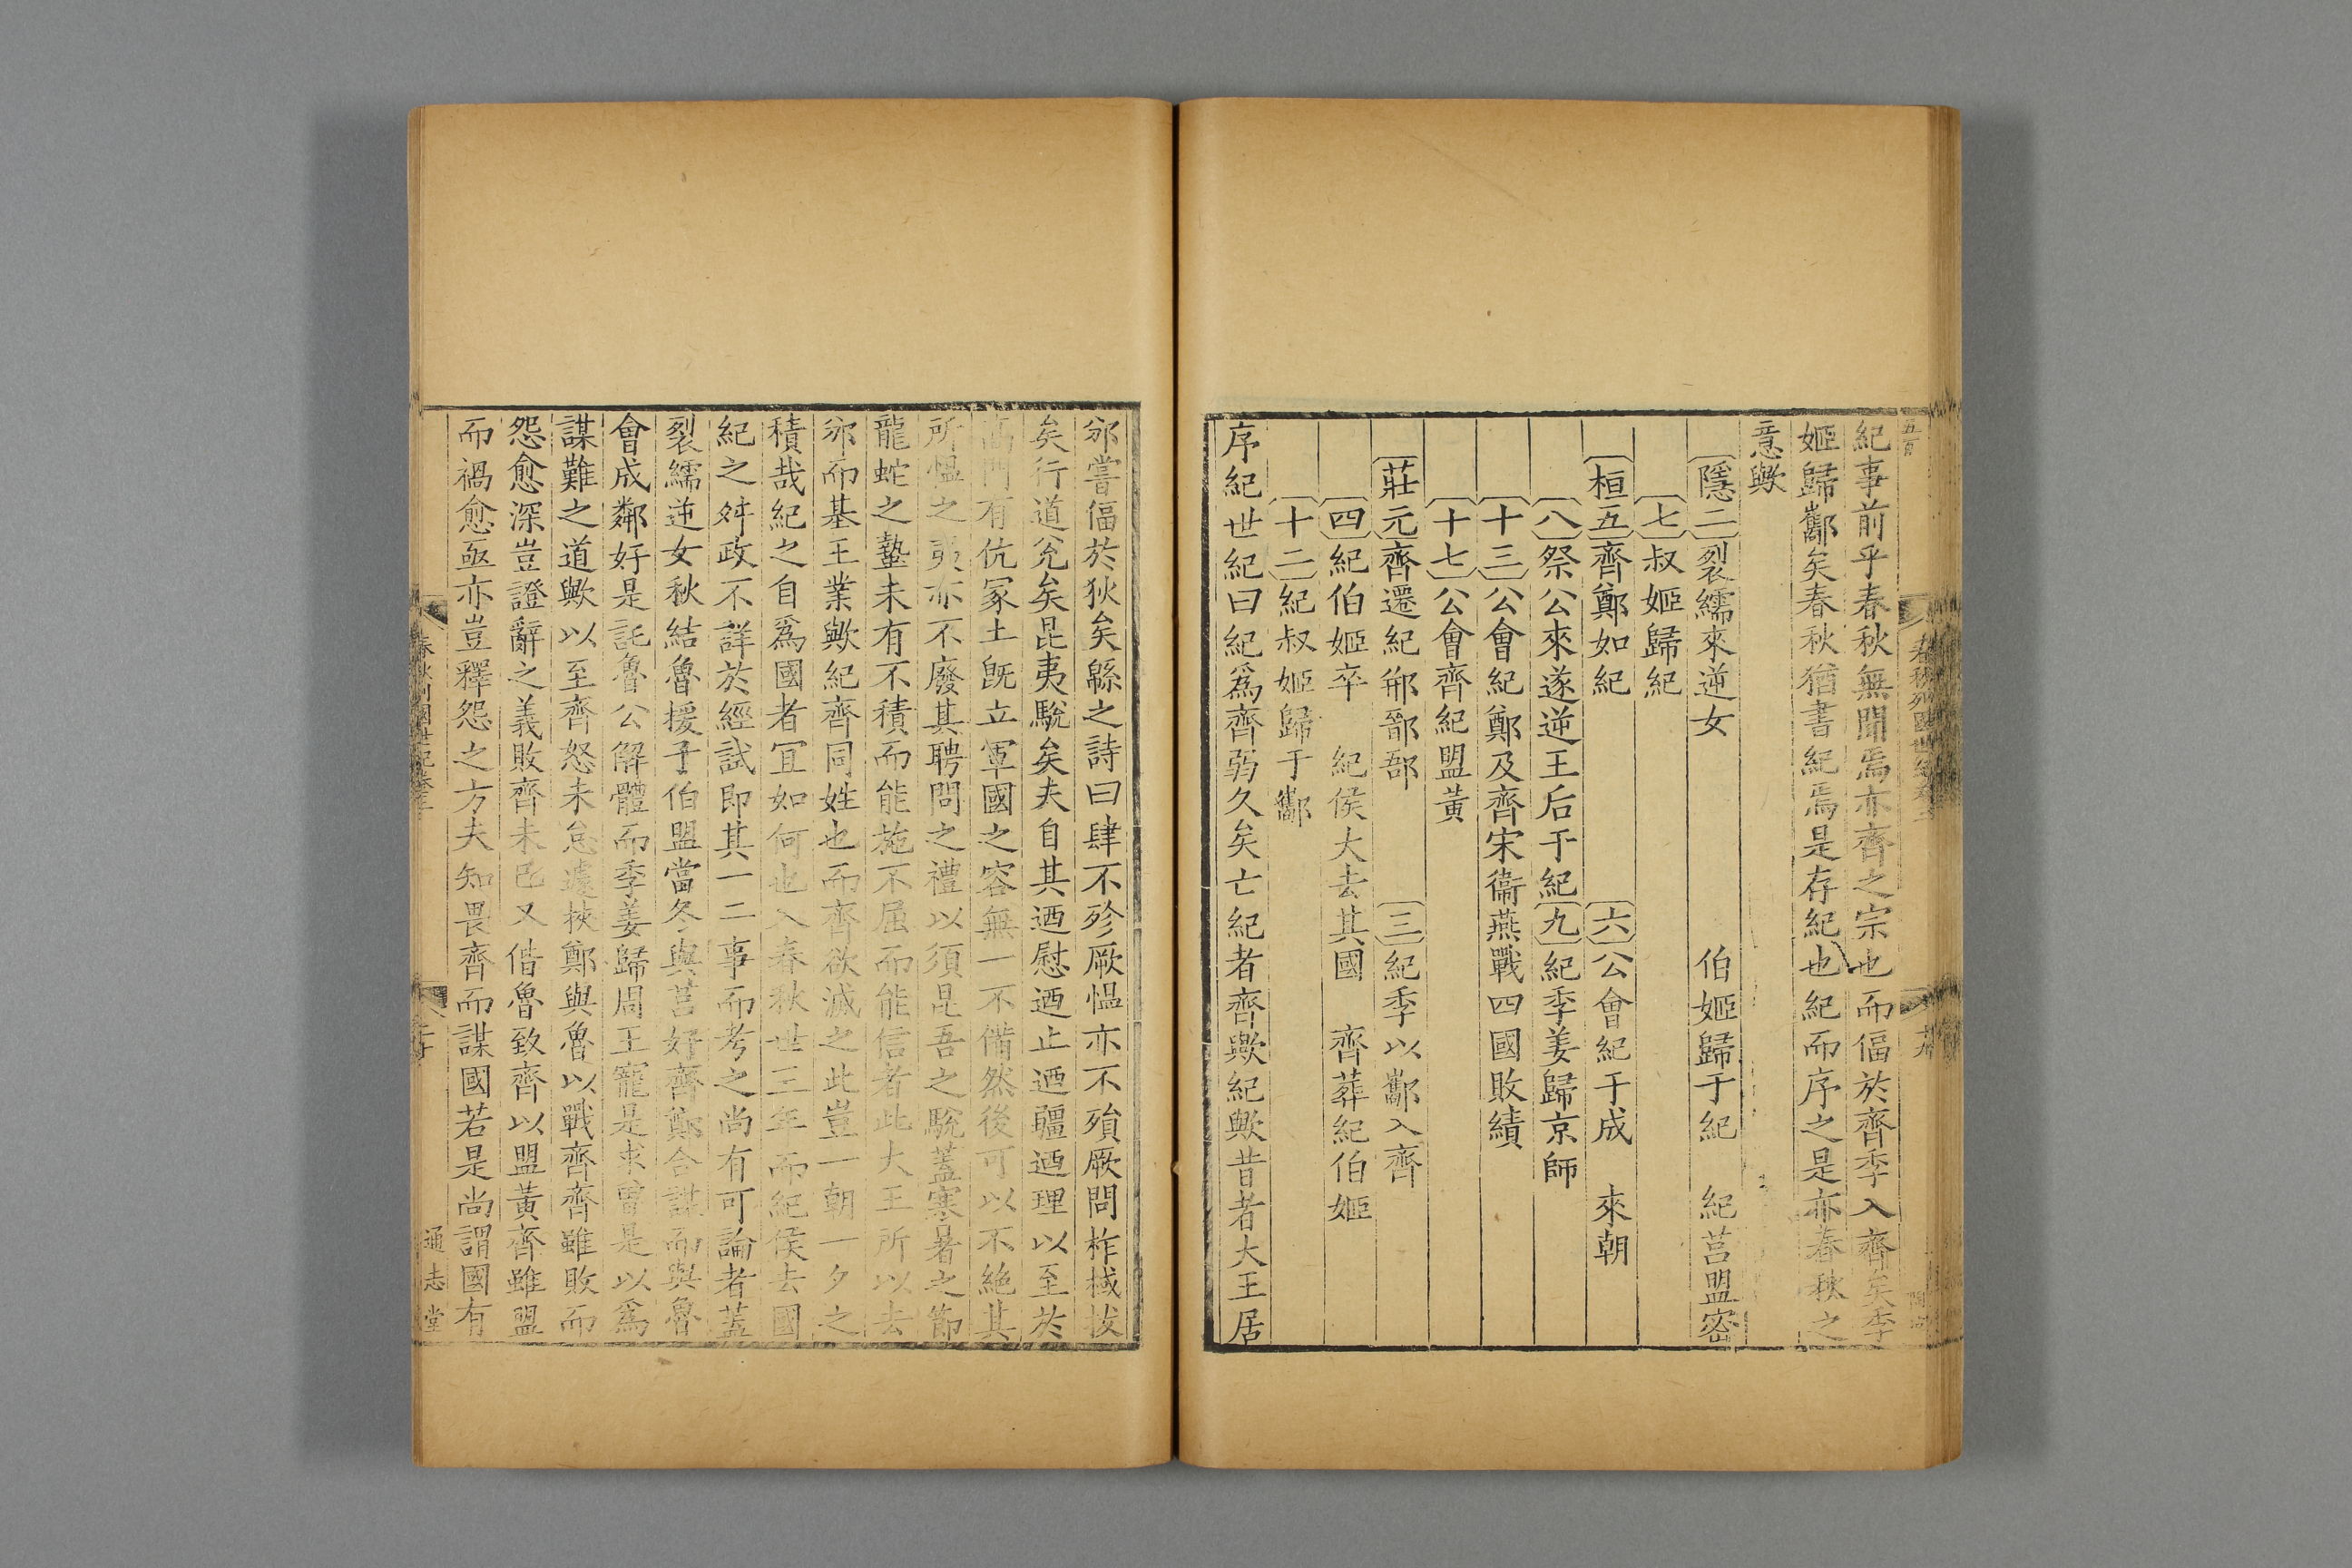 五百
春秋列國世紀卷三
十九
紀事前乎春秋無聞焉亦齊之宗也而偪於齊季入齊矣季
姬歸酅矣春秋猶書紀焉是存紀也紀而序之是亦春秋之
意歟
隱二裂繻來逆女 伯姬歸于紀 紀莒盟密
七叔姬歸紀
桓五齊鄭如紀 六公會紀于成 來朝
八祭公來遂逆王后于紀九紀季姜歸京師
十三公會紀鄭及齊宋衞燕戰四國敗績
十七公會齊紀盟黃
莊元齊遷紀郱鄑郚 三紀季以酅入齊
四紀伯姬卒 紀侯大去其國 齊葬紀伯姬
十二紀叔姬歸于酅
序紀世紀曰紀爲齊弱久矣亡紀者齊歟紀歟昔者大王居
邠嘗偪於狄矣緜之詩曰肆不殄厥愠亦不殞厥問柞棫拔
矣行道兊矣昆夷駾矣夫自其迺慰迺止迺疆迺理以至於
高門有伉冢土旣立軍國之容無一不備然後可以不絶其
所愠之夷亦不廢其聘問之禮以須昆吾之駾蓋寒暑之節
龍蛇之蟄未有不積而能施不屈而能信者此大王所以去
邠而基王業歟紀齊同姓也而齊欲滅之此豈一朝一夕之
積哉紀之自爲國者宜如何也入春秋世三年而紀侯去國
紀之舛政不詳於經試即其一二事而考之尚有可論者蓋
裂繻逆女秋結魯援子伯盟當冬與莒好齊鄭合謀而與魯
會成鄰好是託魯公解體而季姜歸周王寵是求曾是以爲
謀難之道歟以至齊怒未怠遽挾鄭與魯以戰齊齊雖敗而
怨愈深豈證辭之義敗齊未已又偕魯致齊以盟黃齊雖盟
而禍愈亟亦豈釋怨之方夫知畏齊而謀國若是尚謂國有
春秋列國世紀卷三
二十
通志堂